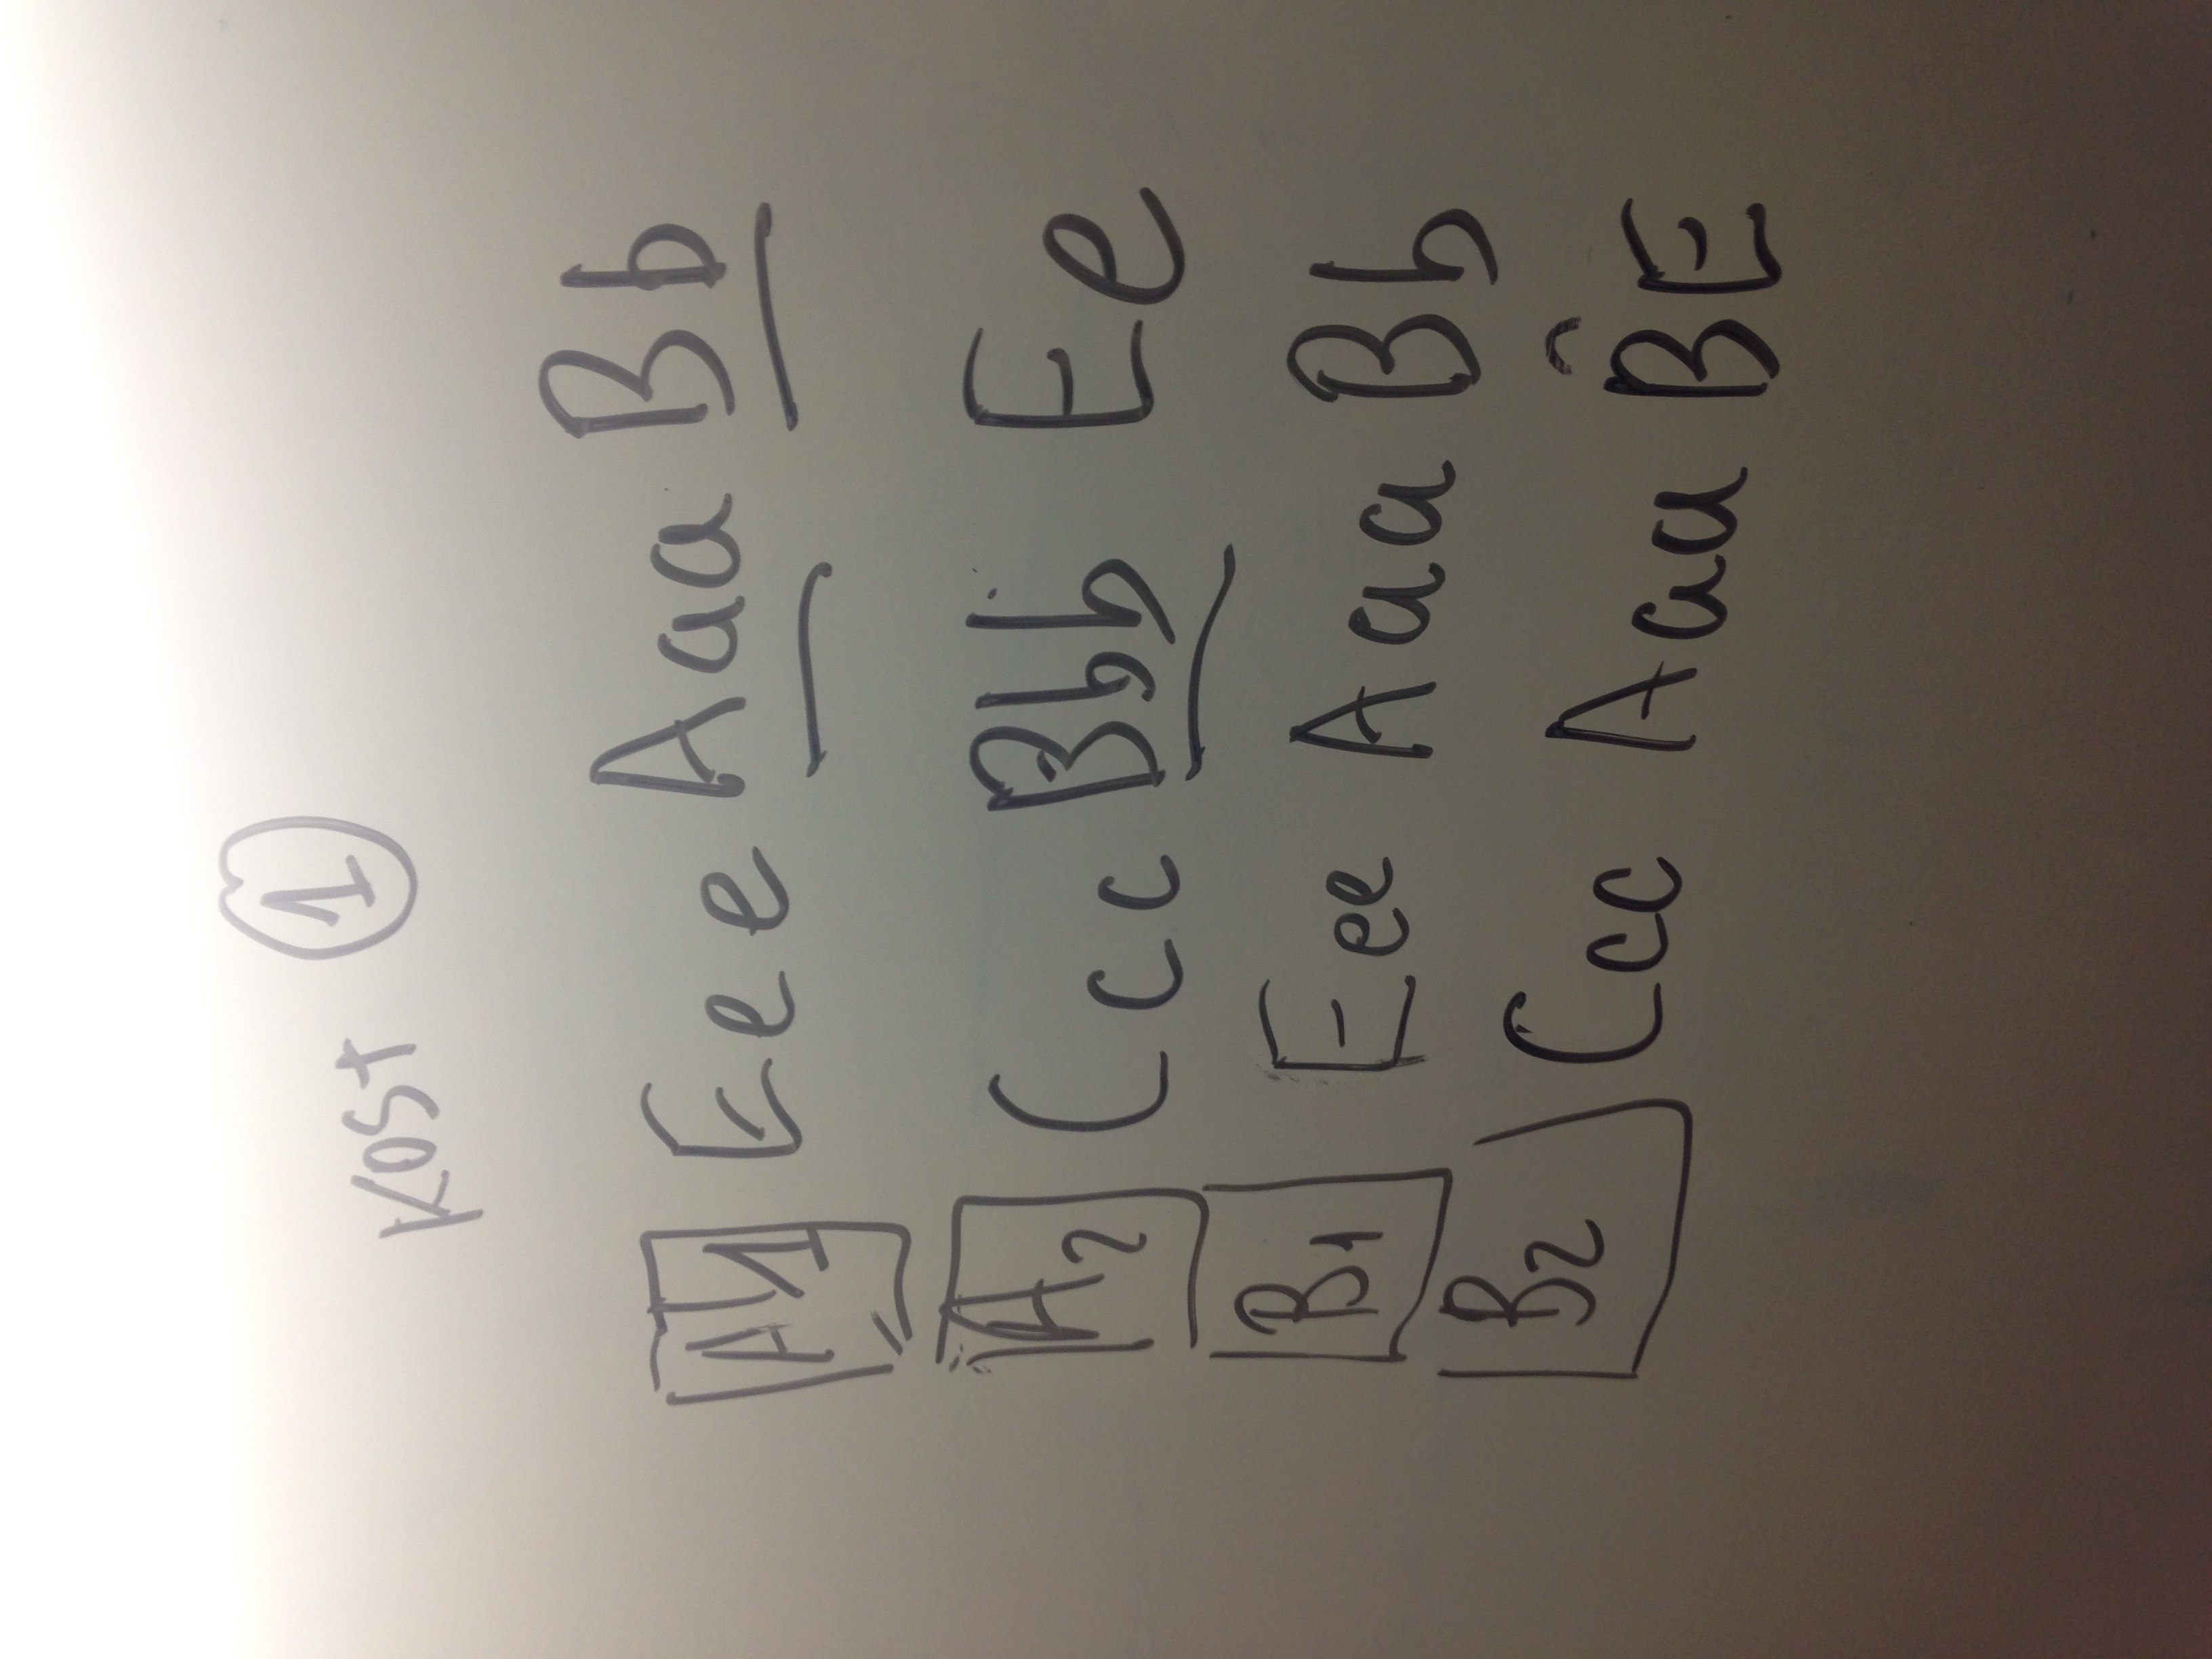 KOST 1
A1 Eee Aaa Bb
A2 Ccc Bbb Ee
B1 Eee Aaa Bb
B2 Ccc Aaa BE